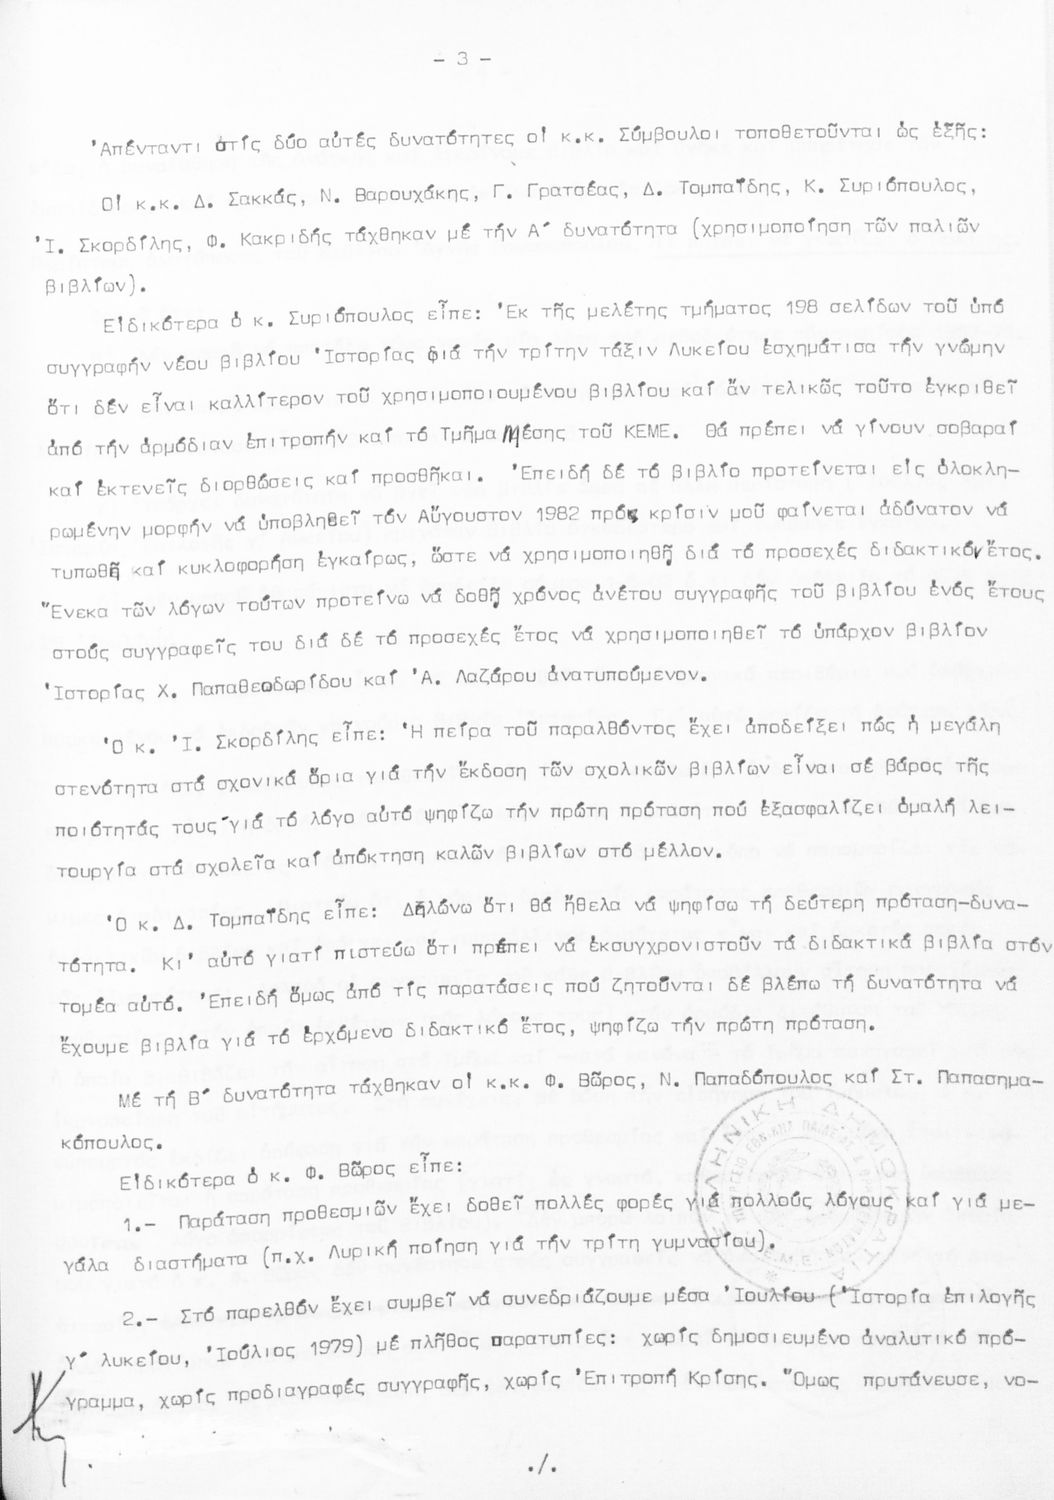 - 3 -
Ἀπέναντι στίς δύο αὐτές δυνατότητες οἱ κ.κ. Σύμβουλοι τοποθετοῦνται ὡς ἑξῆς:
Οἱ κ.κ. Δ. Σακκάς, Ν. Βαρουχάκης, Γ. Γρατσέας, Δ. Τομπαΐδης, Κ. Συριόπουλος,
Ἰ. Σκορδίλης, Φ. Κακριδής τάχθηκαν μέ τήν Α΄ δυνατότητα (χρησιμοποίηση τῶν παλιῶν
βιβλίων).
Εἰδικότερα ὁ κ. Συριόπουλος εἶπε: Ἐκ τῆς μελέτης τμήματος 198 σελίδων τοῦ ὑπό
συγγραφήν νέου βιβλίου Ἱστορίας διά τήν τρίτην τάξιν Λυκείου ἐσχημάτισα τήν γνώμην
ὅτι δέν εἶναι καλλίτερον τοῦ χρησιμοποιουμένου βιβλίου καί ἄν τελικῶς τοῦτο ἐγκριθεῖ
ἀπό τήν ἁρμόδιαν ἐπιτροπήν καί τό Τμῆμα Μέσης τοῦ ΚΕΜΕ. Θά πρέπει νά γίνουν σοβαραί
καί ἐκτενεῖς διορθώσεις καί προσθῆκαι. Ἐπειδή δέ τό βιβλίο προτείνεται εἰς ὁλοκλη-
ρωμένην μορφήν νά ὑποβληθεῖ τόν Αὔγουστον 1982 πρός κρίσιν μοῦ φαίνεται ἀδύνατον νά
τυπωθῆ καί κυκλοφορήση ἐγκαίρως, ὥστε νά χρησιμοποιηθῇ διά τό προσεχές διδακτικόν ἔτος.
Ἕνεκα τῶν λόγων τούτων προτείνω νά δοθῇ χρόνος ἀνέτου συγγραφῆς τοῦ βιβλίου ἑνός ἔτους
στούς συγγραφεῖς του διά δέ τό προσεχές ἔτος νά χρησιμοποιηθεῖ τό ὑπάρχον βιβλίον
Ἱστορίας Χ. Παπαθεοδωρίδου καί Ἀ. Λαζάρου ἀνατυπούμενον.
Ὁ κ. Ἰ. Σκορδίλης εἶπε: Ἡ πείρα τοῦ παραλθόντος ἔχει ἀποδείξει πώς ἡ μεγάλη
στενότητα στά σχονικά ὅρια γιά τήν ἔκδοση τῶν σχολικῶν βιβλίων εἶναι σέ βάρος τῆς
ποιότητάς τους΄γιά τό λόγο αὐτό ψηφίζω τήν πρώτη πρόταση πού ἐξασφαλίζει ὁμαλή λει-
τουργία στά σχολεῖα καί ἀπόκτηση καλῶν βιβλίων στό μέλλον.
Ὁ κ. Δ. Τομπαΐδης εἶπε: Δηλώνω ὅτι θά ἤθελα νά ψηφίσω τή δεύτερη πρόταση-δυνα-
τότητα. Κι' αὐτό γιατί πιστεύω ὅτι πρέπει νά ἐκσυγχρονιστοῦν τά διδακτικά βιβλία στόν
τομέα αὐτό. Ἐπειδή ὅμως ἀπό τίς παρατάσεις πού ζητοῦνται δέ βλέπω τή δυνατότητα νά
ἔχουμε βιβλία γιά τό ἐρχόμενο διδακτικό ἔτος, ψηφίζω τήν πρώτη πρόταση.
Μέ τή Β΄ δυνατότητα τάχθηκαν οἱ κ.κ. Φ. Βῶρος, Ν. Παπαδόπουλος καί Στ. Παπασημα-
κόπουλος.
Εἰδικότερα ὁ κ. Φ. Βῶρος εἶπε:
1.- Παράταση προθεσμιῶν ἔχει δοθεῖ πολλές φορές γιά πολλούς λόγους καί γιά με-
γάλα διαστήματα (π.χ. Λυρική ποίηση γιά τήν τρίτη γυμνασίου).
2.- Στό παρελθόν ἔχει συμβεῖ νά συνεδριάζουμε μέσα Ἰουλίου (Ἱστορία ἐπιλογῆς
γ΄ λυκείου, Ἰούλιος 1979) μέ πλῆθος παρατυπίες: χωρίς δημοσιευμένο ἀναλυτικό πρό-
γραμμα, χωρίς προδιαγραφές συγγραφῆς, χωρίς Ἐπιτροπή Κρίσης. Ὅμως πρυτάνευσε, νο-
./.
ΕΛΛΗΝΙΚΗ ΔΗΜΟΚΡΑΤΙΑ
Κ.Ε.Μ.Ε.